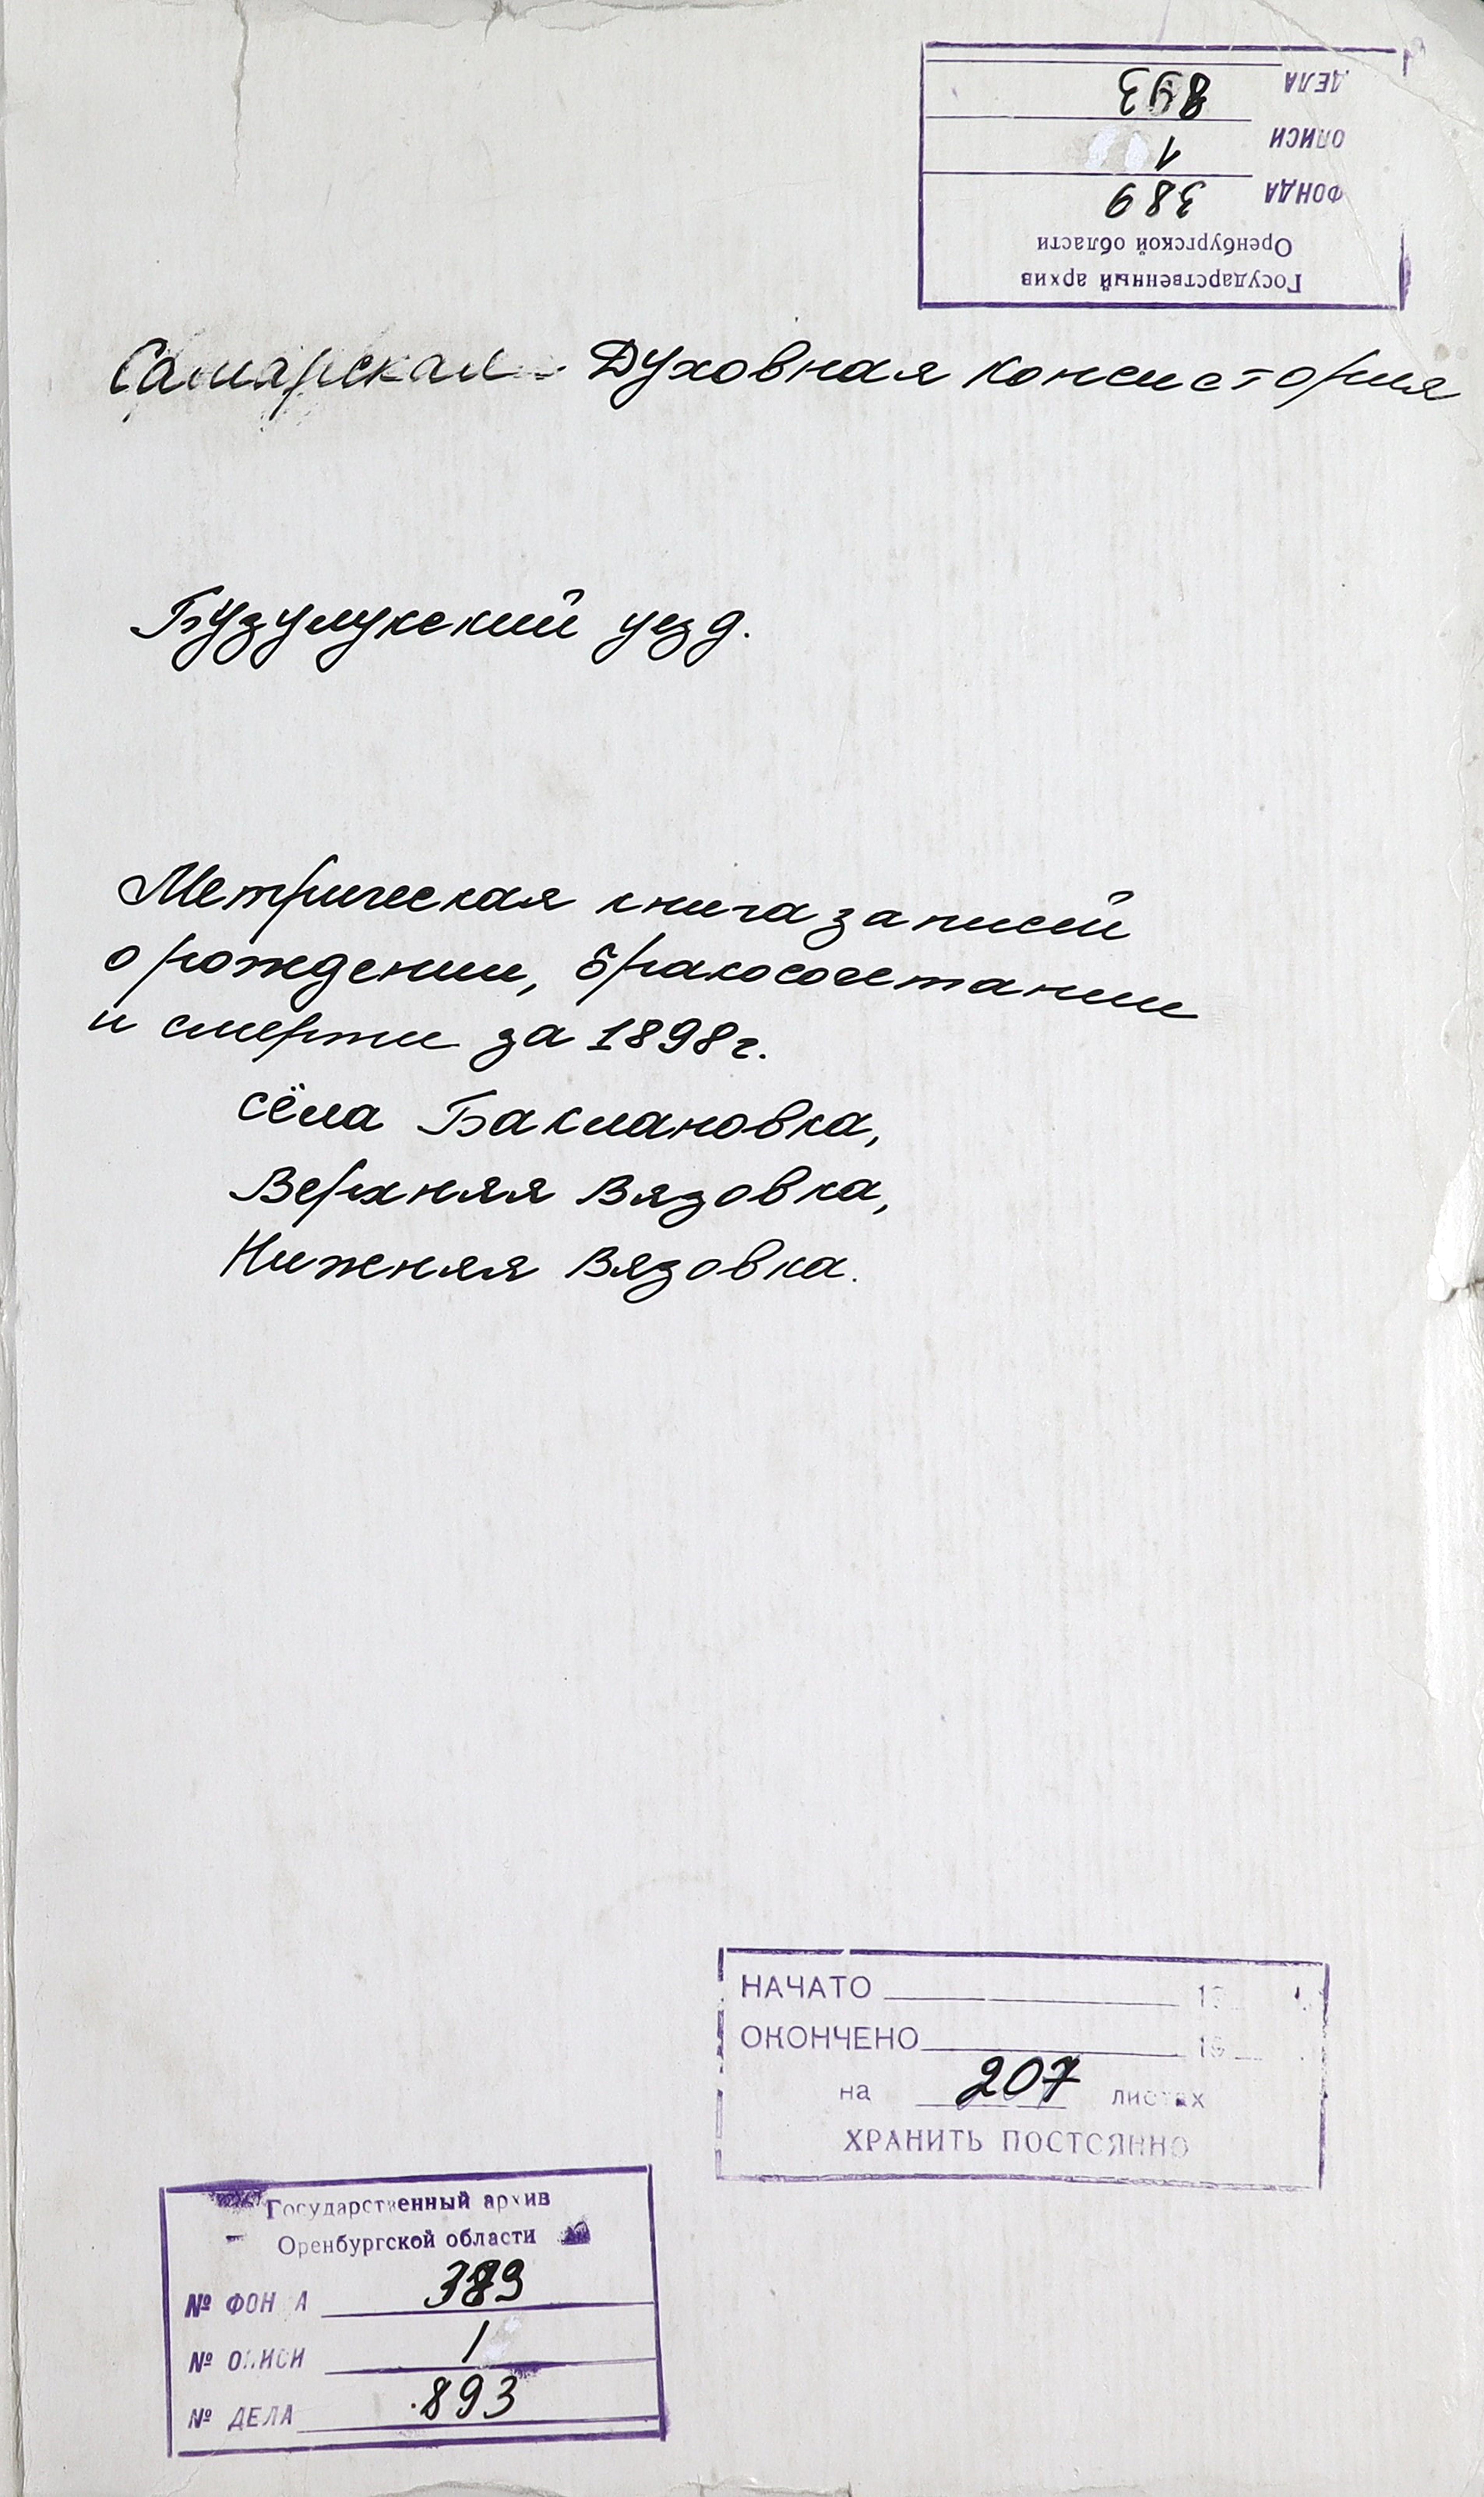 Государственный архив
Оренбургской области
ФОНДА 389
ОПИСИ 1
ДЕЛА 893
Самарская Духовная консистория
Бузулукский уезд.
Метрическая книга записей
о рождении, бракосочетании
и смерти за 1898г.
сёла Баклановка,
Верхняя Вязовка,
Нижняя Вязовка.
НАЧАТО 19
ОКОНЧЕНО 19
на 207 листах
ХРАНИТЬ ПОСТОЯННО
Государственный архив
Оренбургской области
№ ФОНДА 389
№ ОПИСИ 1
№ ДЕЛА 893